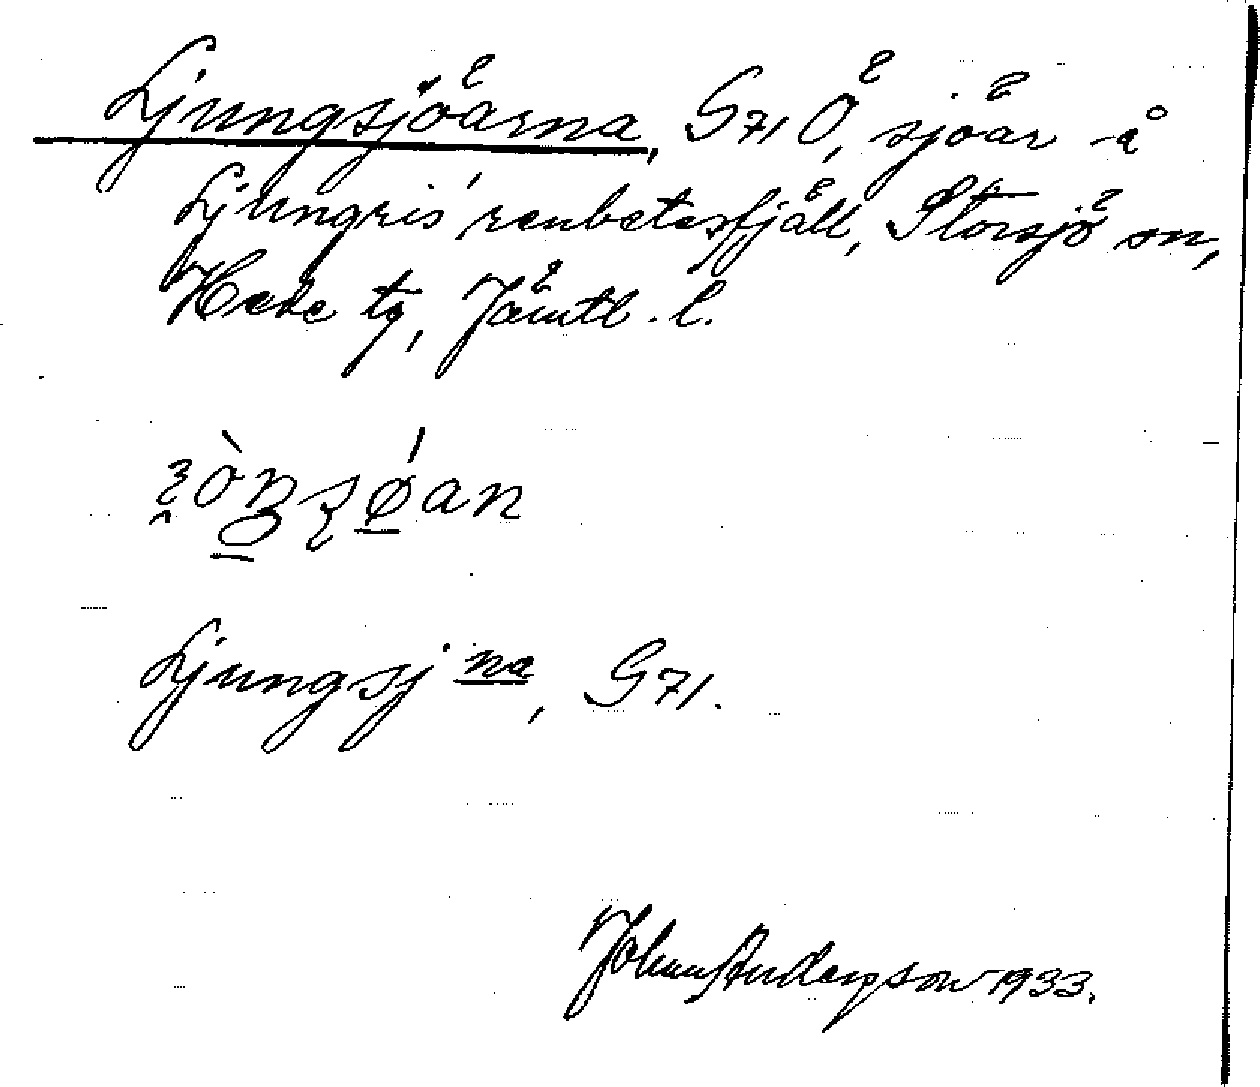 Ljungsjöarna, G71 Ö, sjöar å
Ljungris renbetesfjäll, Storsjö sn,
Hede tg, Jämtl. l.
Ljungsj na, G71.
Johan Anderson 1933.